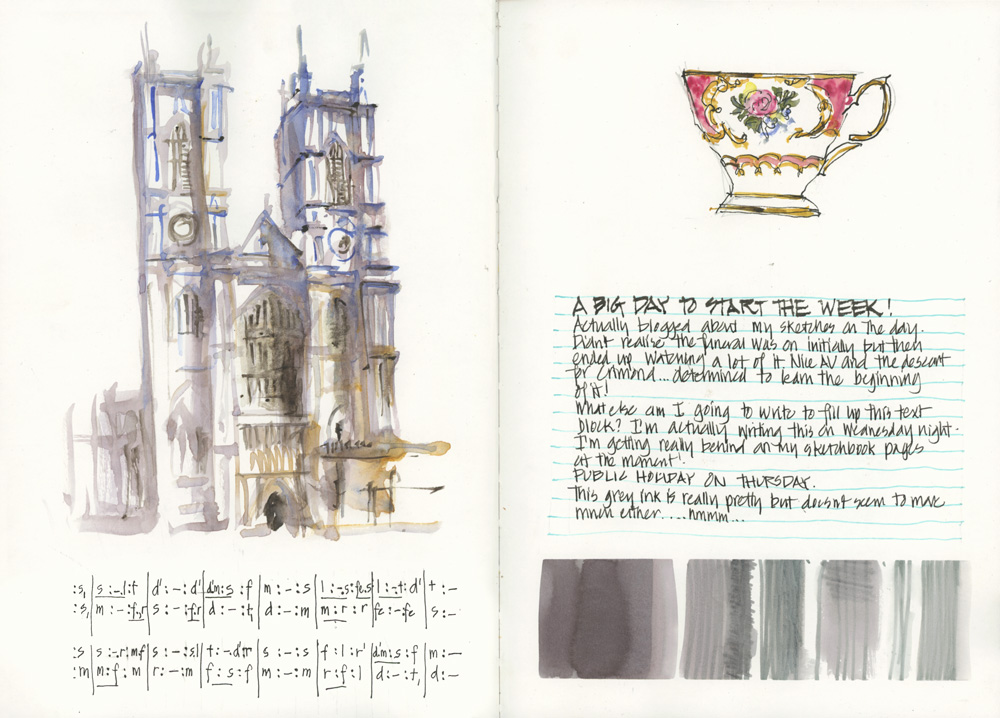 :s, | s :-.l:t | d' : - : d' | d'.m : s : f | m : - : s | l : -.s:fe.s | l : -.t : d' | t : -
:s, | m : - : f.r | s : - : f.r | d : - : t, | d : - : m | m : r : r | fe : - : fe | s : -
:s | s : -.r : m.f | s : - : s.l | t : -.d' : r' | s : - : s | f : l : r' | d'.m : s : f | m : -
:m | m : f : m | r : - : m | f : s : f | m : - : m | r : f : l | d : - : t, | d : -
A BIG DAY TO START THE WEEK!
Actually blogged about my sketches on the day.
Didnt realise the funeral was on initially but then
ended up watching a lot of it. Nice AV and the descant
for Crimond... determined to learn the beginning
of it!
What else am I going to write to fill up this text
block? I'm actually writing this on Wednesday night.
I'm getting really behind on my sketchbook pages
at the moment!
PUBLIC HOLIDAY ON THURSDAY.
This grey ink is really pretty but doesnt seem to move
much either..... hmmm...